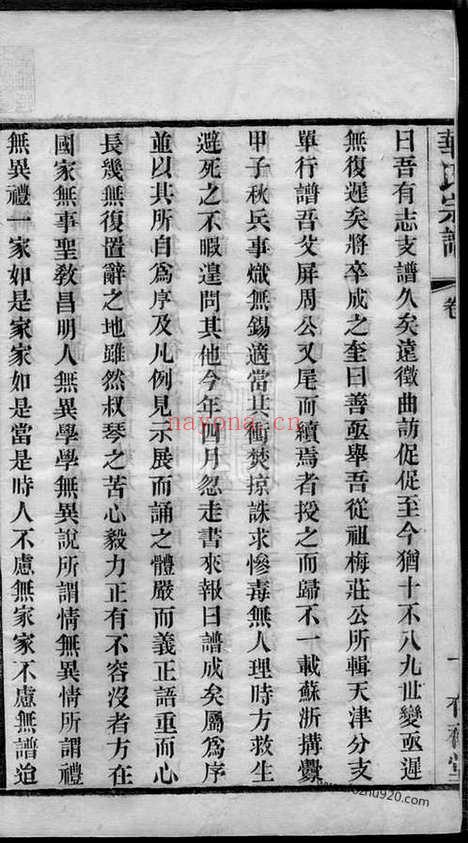 華氏宗譜 卷
曰吾有志支譜久矣遠徵曲訪促促至今猶十不八九世變亟遲
無復遲矣將卒成之奎曰善亟舉吾從祖梅莊公所輯天津分支
單行譜吾父屏周公又尾而續焉者授之而歸不一載蘇浙搆釁
甲子秋兵事熾無錫適當其衝焚掠誅求慘毒無人理時方救生
避死之不暇遑問其他今年四月忽走書來報曰譜成矣屬為序
並以其所自為序及凡例見示展而誦之體嚴而義正語重而心
長幾無復置辭之地雖然叔琴之苦心毅力正有不容沒者方在
國家無事聖敎昌明人無異學學無異說所謂情無異情所謂禮
無異禮一家如是家家如是當是時人不慮無家家不慮無譜迨
nayona.cn